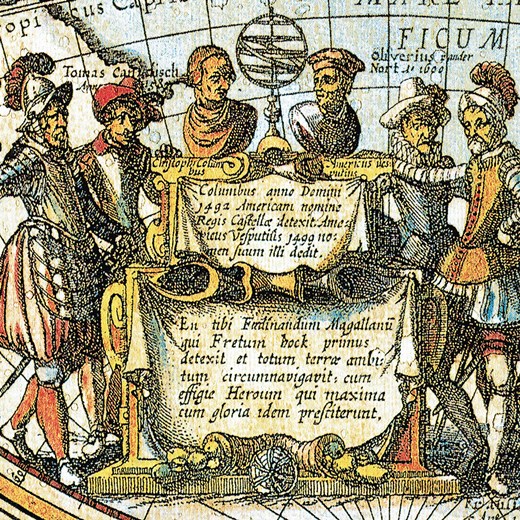 opi
us Capri
MARE
FICUM
Tomas Candisch
Oliverius vander
Nort. Aº 1600
Christoph. Colum
bus
Americus ves
putius
Columbus anno Domini
1492 Americam nomine
Regis Castellæ detexit. Ame
ricus Vesputius 1499 no
men suum illi dedit.
En tibi Ferdinandum Magallanū
qui Fretum hock primus
detexit et totum terræ ambi:
tum circumnavigavit: cum
effigie Heroum qui maxima
cum gloria idem prestiterunt.